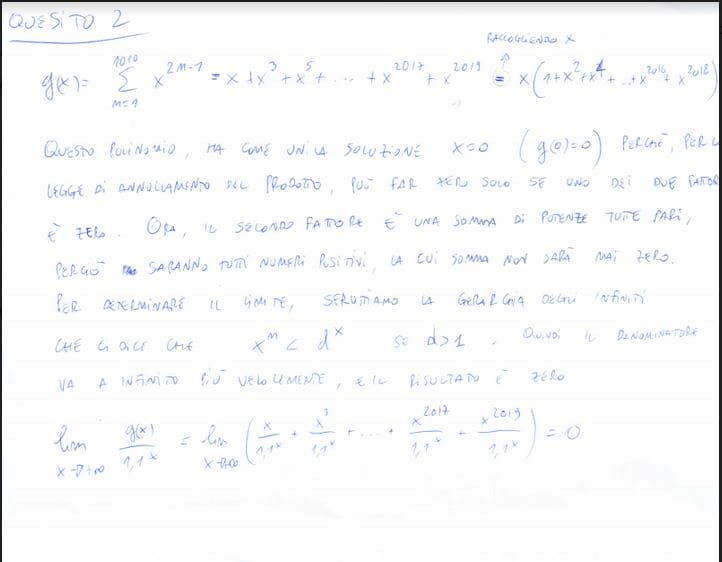 QUESITO 2
RACCOGLIENDO X
g(x) = 1010 Σ m=1 x^{2m-1} = x + x^3 + x^5 + ... + x^{2017} + x^{2019} = x(1+x^2+x^4+...+x^{2016}+x^{2018})
QUESTO POLINOMIO, HA COME UNICA SOLUZIONE x=0 (g(0)=0) PERCHÉ, PER L
LEGGE DI ANNULLAMENTO DEL PRODOTTO, PUÒ FAR ZERO SOLO SE UNO DEI DUE FATTOR
È ZERO. ORA, IL SECONDO FATTORE È UNA SOMMA DI POTENZE TUTTE PARI,
PERCIÒ SARANNO TUTTI NUMERI POSITIVI, LA CUI SOMMA NON SARÀ MAI ZERO.
PER DETERMINARE IL LIMITE, SFRUTTIAMO LA GERARCHIA DEGLI INFINITI
CHE CI DICE CHE x^m < d^x SE d>1. QUINDI IL DENOMINATORE
VA A INFINITO PIÙ VELOCEMENTE, E IL RISULTATO È ZERO
lim x→+∞ g(x)/1,1^x = lim x→+∞ (x/1,1^x + x^3/1,1^x + ... + x^{2017}/1,1^x + x^{2019}/1,1^x) = 0